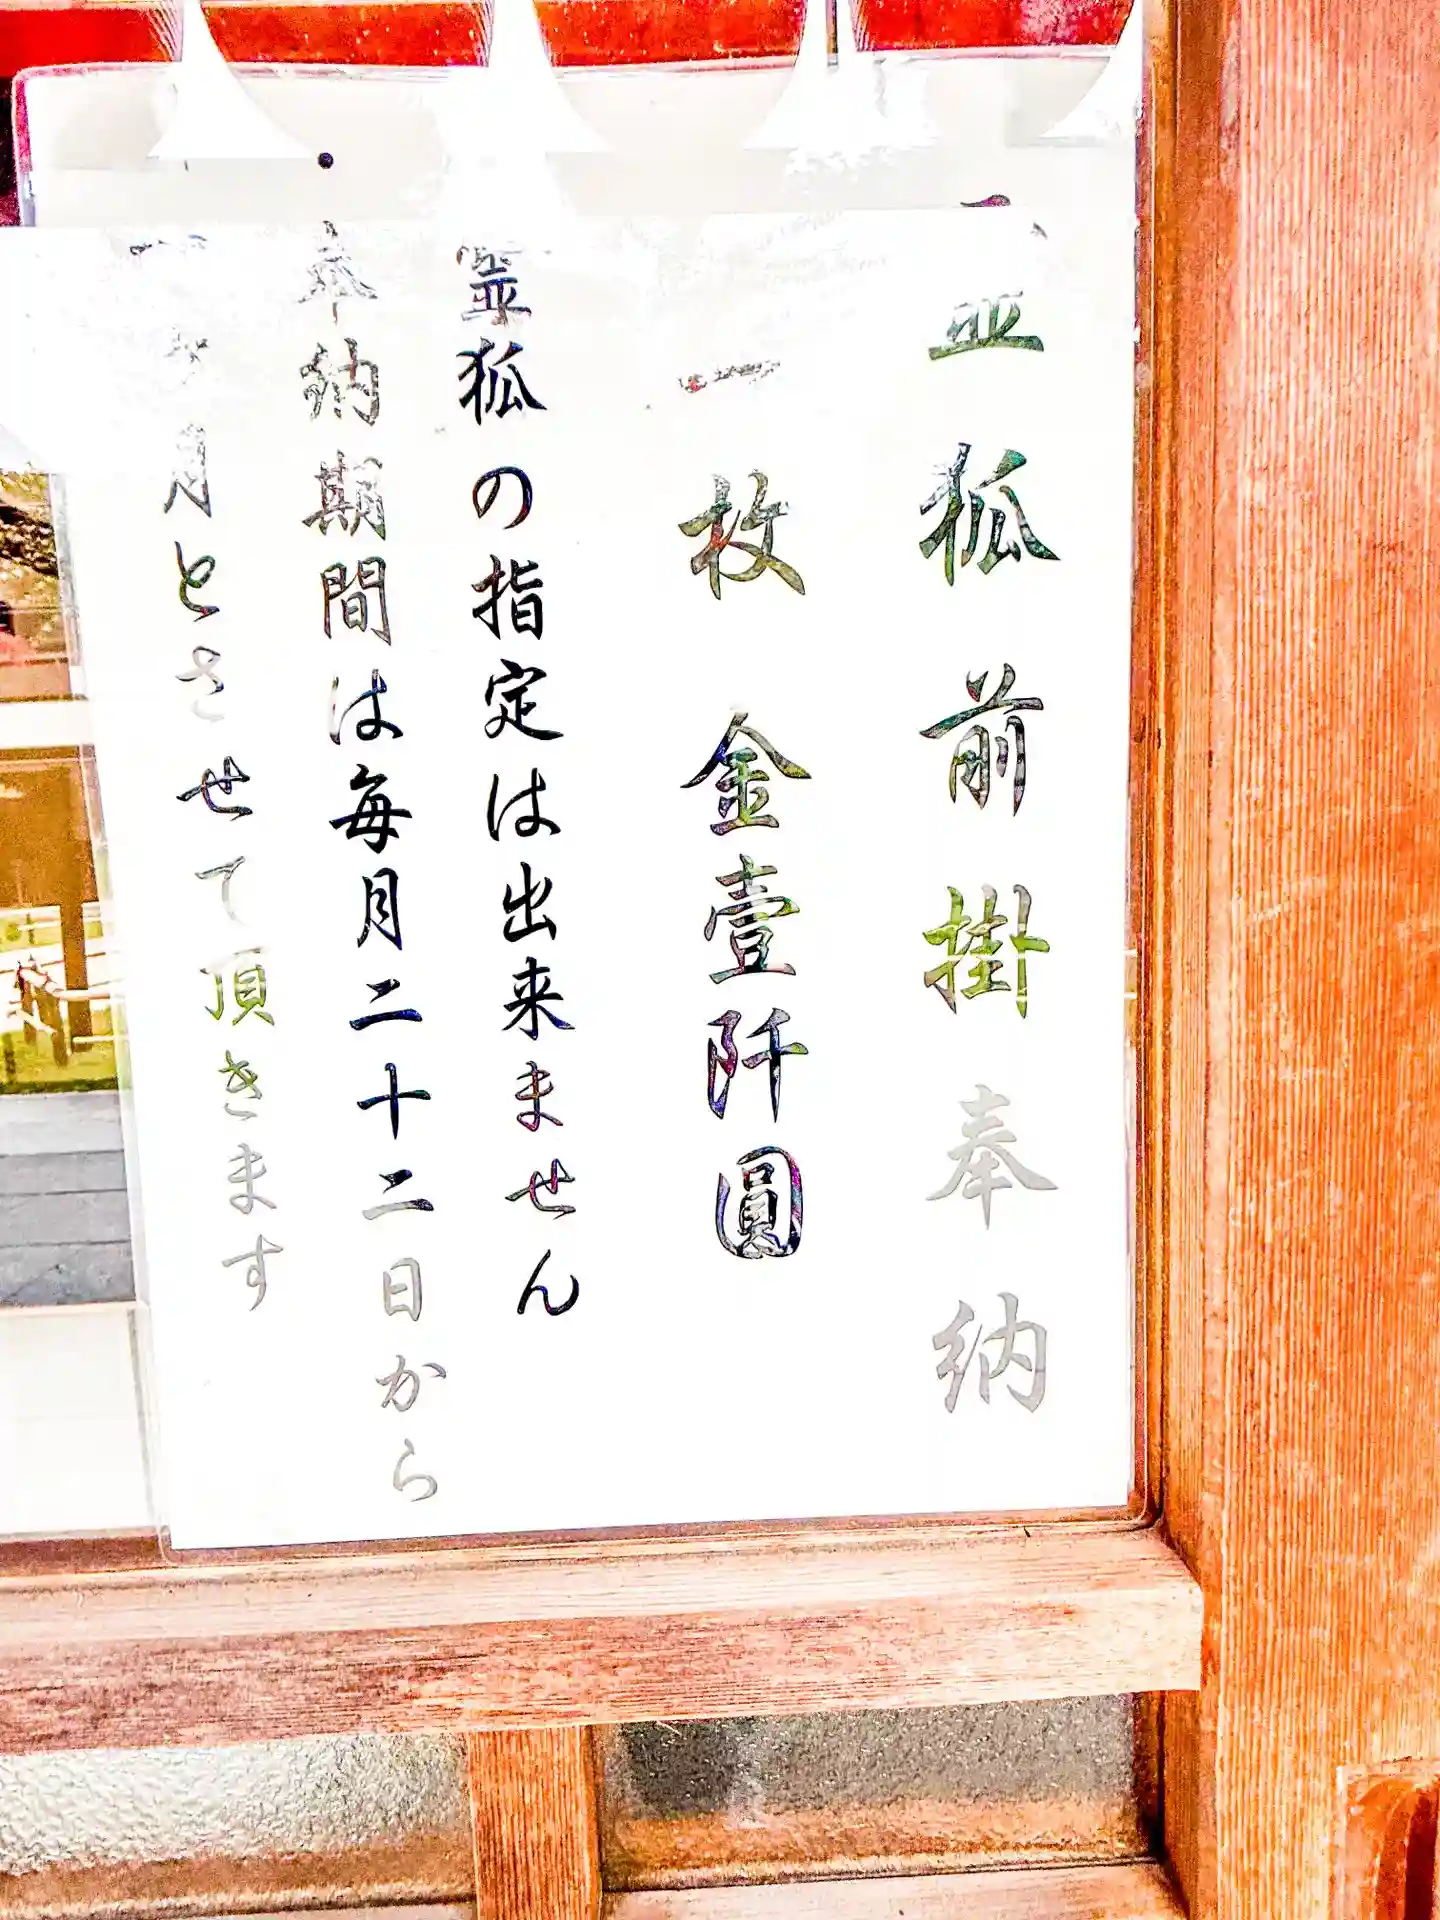 霊狐前掛奉納
一枚 金壹阡圓
霊狐の指定は出来ません
・奉納期間は毎月二十二日から
月とさせて頂きます